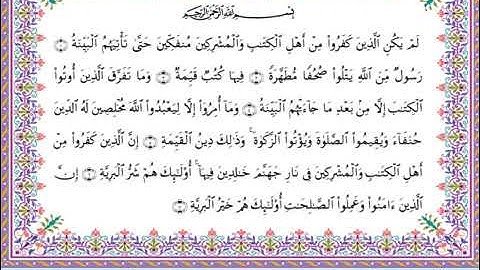 بِسْمِ ٱللَّهِ ٱلرَّحْمَٰنِ ٱلرَّحِيمِ
لَمْ يَكُنِ ٱلَّذِينَ كَفَرُوا۟ مِنْ أَهْلِ ٱلْكِتَٰبِ وَٱلْمُشْرِكِينَ مُنفَكِّينَ حَتَّىٰ تَأْتِيَهُمُ ٱلْبَيِّنَةُ ۝١
رَسُولٌ مِّنَ ٱللَّهِ يَتْلُوا۟ صُحُفًا مُّطَهَّرَةً ۝٢ فِيهَا كُتُبٌ قَيِّمَةٌ ۝٣ وَمَا تَفَرَّقَ ٱلَّذِينَ أُوتُوا۟
ٱلْكِتَٰبَ إِلَّا مِنۢ بَعْدِ مَا جَآءَتْهُمُ ٱلْبَيِّنَةُ ۝٤ وَمَآ أُمِرُوٓا۟ إِلَّا لِيَعْبُدُوا۟ ٱللَّهَ مُخْلِصِينَ لَهُ ٱلدِّينَ
حُنَفَآءَ وَيُقِيمُوا۟ ٱلصَّلَوٰةَ وَيُؤْتُوا۟ ٱلزَّكَوٰةَ ۚ وَذَٰلِكَ دِينُ ٱلْقَيِّمَةِ ۝٥ إِنَّ ٱلَّذِينَ كَفَرُوا۟ مِنْ
أَهْلِ ٱلْكِتَٰبِ وَٱلْمُشْرِكِينَ فِى نَارِ جَهَنَّمَ خَٰلِدِينَ فِيهَآ ۚ أُو۟لَٰٓئِكَ هُمْ شَرُّ ٱلْبَرِيَّةِ ۝٦ إِنَّ
ٱلَّذِينَ ءَامَنُوا۟ وَعَمِلُوا۟ ٱلصَّٰلِحَٰتِ أُو۟لَٰٓئِكَ هُمْ خَيْرُ ٱلْبَرِيَّةِ ۝٧